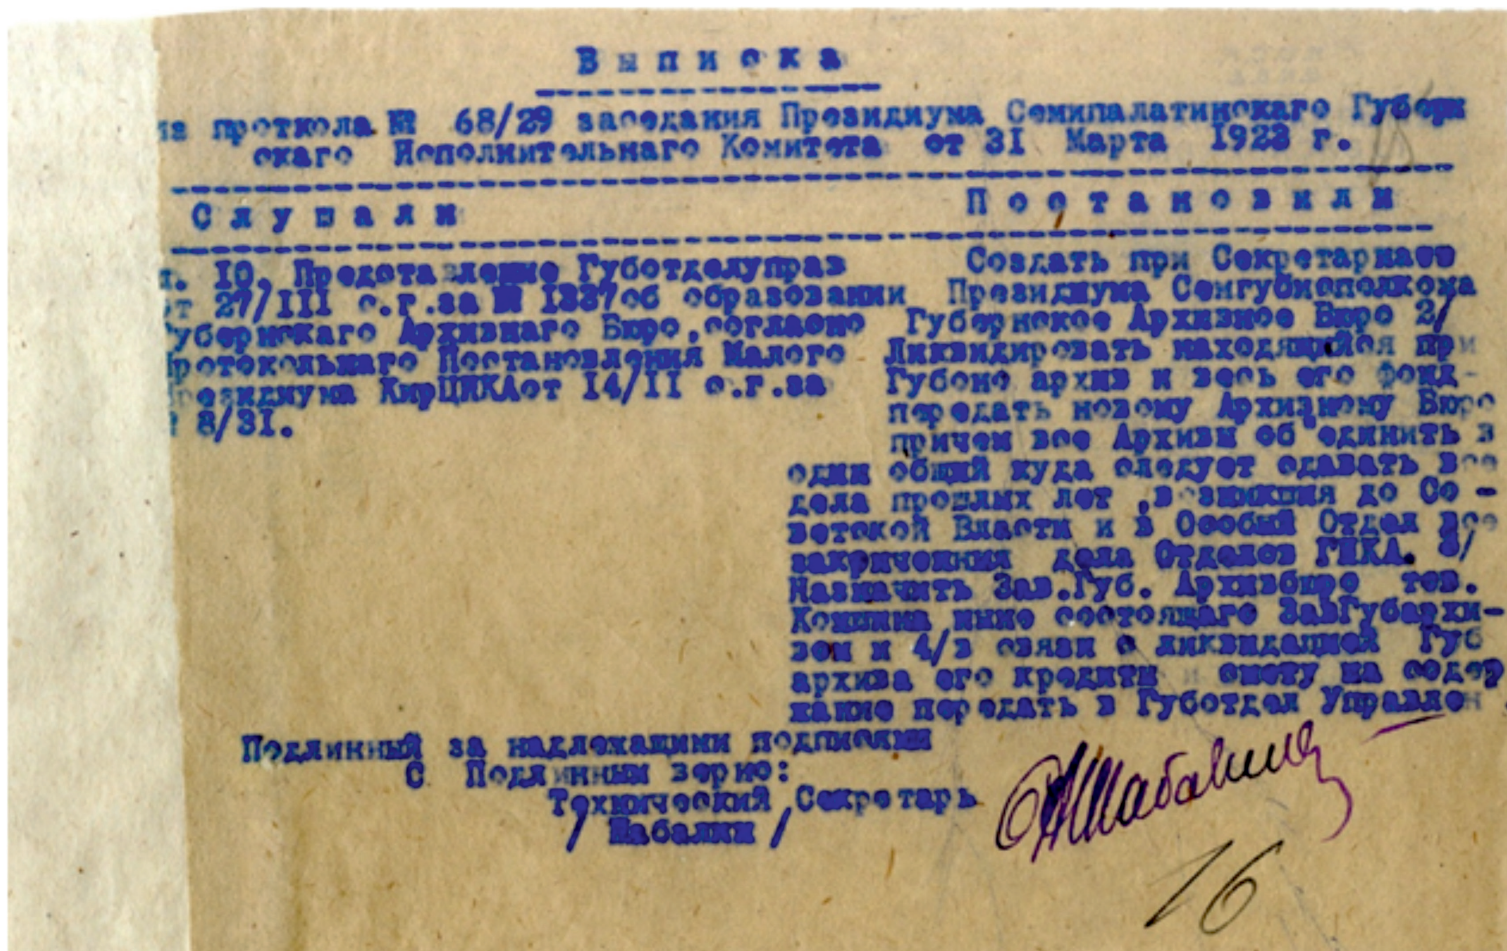 Выписка
из проткола № 68/29 заседания Президиума Семипалатинскаго Губерн
скаго Исполнительнаго Комитета от 31 Марта 1923 г.
Слушали
п. 10. Представление Губотделуправ
от 27/III с.г.за № 1337 об образовании
Губернскаго Архивнаго Бюро,согласно
Протокольнаго Постановления Малого
Президиума КирЦИКАот 14/II с.г.за
№ 8/31.
Постановили
Создать при Секретариате
Президиума Семгубисполкома
Губернское Архивное Бюро 2/
Ликвидировать находящийся при
Губоно архив и весь его фонд-
передать новому Архивному Бюро
причем все Архивы об'единить в
один общий куда следует сдавать все
дела прошлых лет ,возникшия до Со -
ветской Власти и в Особый Отдел все
законченныя дела Отделов ГИКА. 3/
Назначить Зав.Губ. Архивбюро тов.
ныне состоящаго ЗавГубархи-
вом и 4/в связи с ликвидацией Губ
архива его кредиты и смету на содер
жание передать в Губотдел Управлен
Подлинный за надлежащими подписями
С Подлинным верно:
Технический Секретарь
/ Шабалин /
Шабалин
16